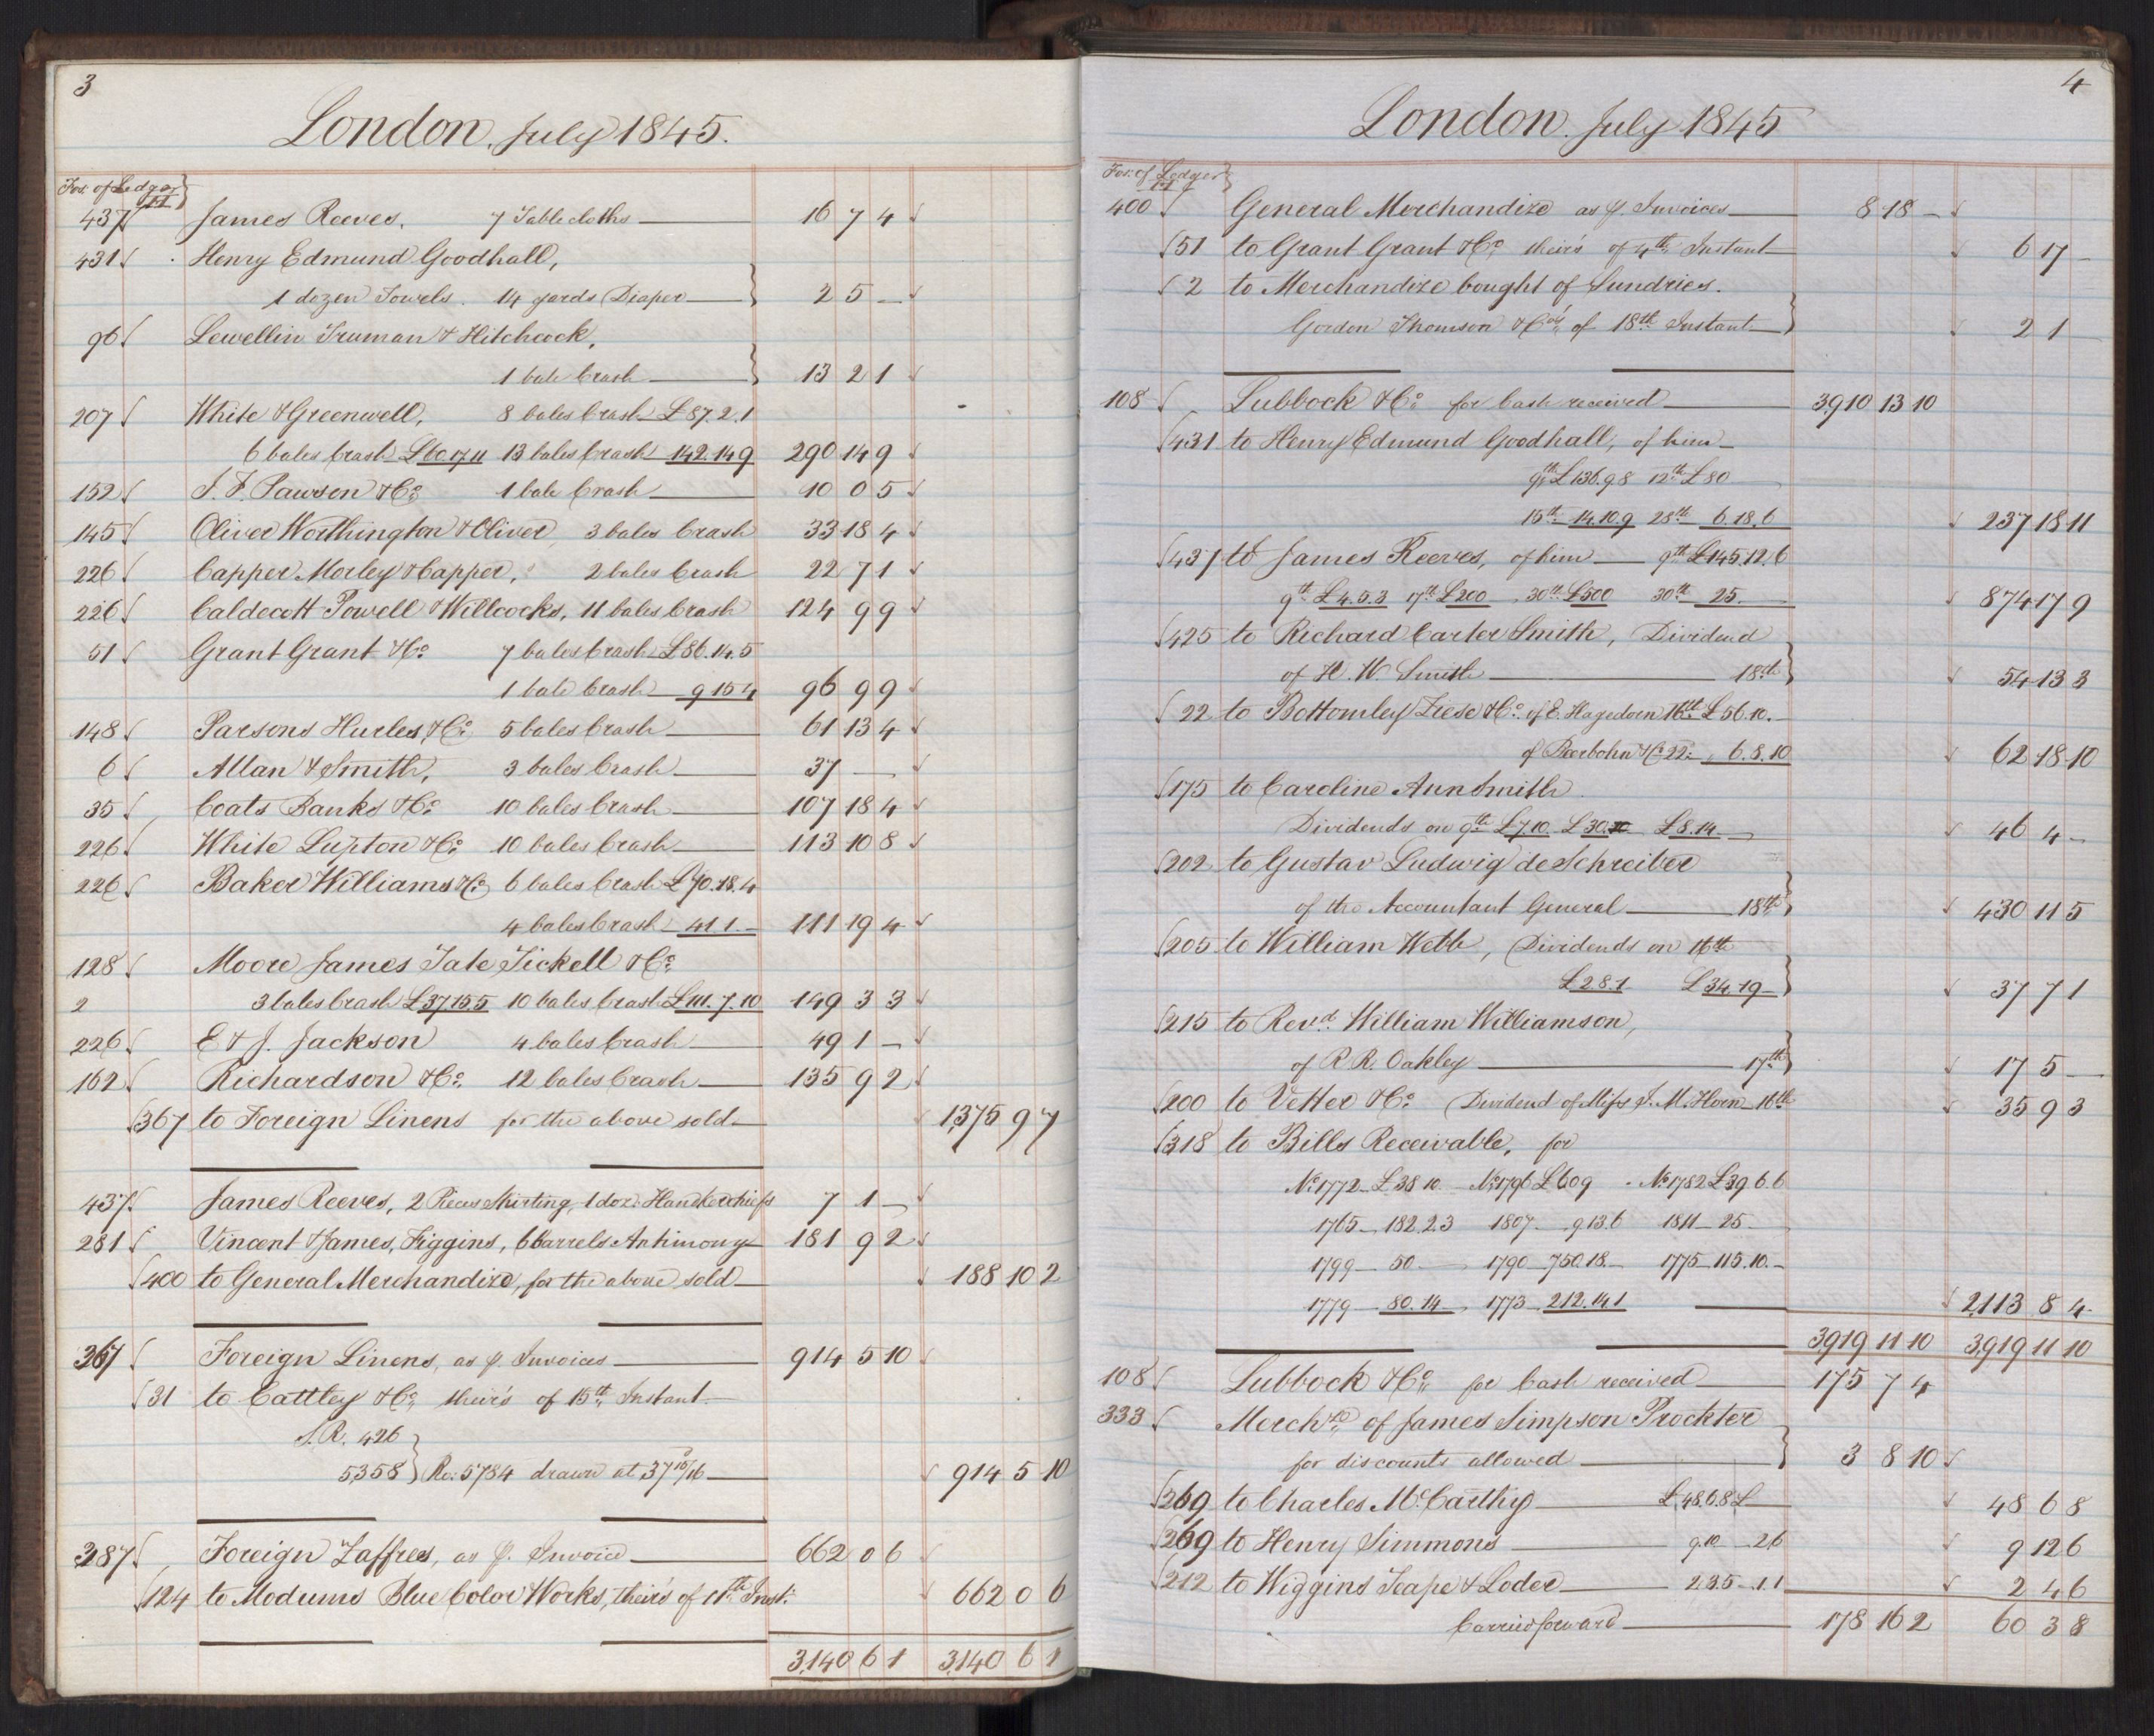 3
London, July 1845.
Fos. of Ledger 11
437 James Reeves, 7 Tablecloths 16 7 4
431 Henry Edmund Goodhall,
1 dozen Towels. 14 yards Diaper 2 5 –
96 Lewellin Truman & Hitchcock,
1 bale Crash 13 2 1
207 White & Greenwell, 8 bales Crash £87.2.1
6 bales Crash £60.17.11 13 bales Crash 142.14.9 290 14 9
152 J. F. Pawson & Co. 1 bale Crash 10 0 5
145 Oliver Worthington & Oliver, 3 bales Crash 33 18 4
226 Capper Morley & Capper, 2 bales Crash 22 7 1
226 Caldecott Powell & Willcocks, 11 bales Crash 124 9 9
51 Grant Grant & Co. 7 bales Crash £86.14.5
1 bale Crash 9 15 4 96 9 9
148 Parsons Hurles & Co. 5 bales Crash 61 13 4
6 Allan & Smith, 3 bales Crash 37 –
35 Coats Banks & Co. 10 bales Crash 107 18 4
226 White Lupton & Co. 10 bales Crash 113 10 8
226 Baker Williams & Co. 6 bales Crash £70.18.4
4 bales Crash 41 1 – 111 19 4
128 Moore James Tate Tickell & Co.
2 3 bales Crash £37.15.5 10 bales Crash £111.7.10 149 3 3
226 E & J. Jackson 4 bales Crash 49 1 –
162 Richardson & Co. 12 bales Crash 135 9 2
367 to Foreign Linens for the above sold 1,375 9 7
437 James Reeves, 2 Pieces Shirting, 1 doz. Handkerchiefs 7 1 –
281 Vincent & James, Figgins, 6 barrels Antimony 181 9 2
400 to General Merchandize, for the above sold 188 10 2
367 Foreign Linens, as p. Invoices 914 5 10
31 to Cattley & Co. their's of 15th Instant
S.R. 426
5358 } Ro: 5784 drawn at 37 15/16 914 5 10
387 Foreign Zaffres, as p. Invoice 662 0 6
124 to Modums Blue Color Works, their's of 11th Inst. 662 0 6
3,140 6 1 3,140 6 1
4
London. July 1845
Fos. of Ledger 11
400 General Merchandize as p. Invoices 8 18 –
51 to Grant Grant & Co. their's of 4th Instant 6 17 –
2 to Merchandize bought of Sundries.
Gordon Thomson & Co's of 18th Instant 2 1
108 Lubbock & Co. for Cash received 3,910 13 10
431 to Henry Edmund Goodhall, of him
9th £136.9.8 12th £80
15th 14.10.9 28th 6.18.6 237 18 11
437 to James Reeves, of him 9th £145.12.6
9th £4.5.3 17th £200 30th £500 30th 25. 874 17 9
425 to Richard Carter Smith, Dividend
of H. W. Smith 18th 54 13 3
22 to Bottomley Ziese & Co. of E. Hagedorn 16th £56.10.–
of Beerbohm & Co. 22. 6.8.10 62 18 10
175 to Caroline Ann Smith.
Dividends on 9th £7.10 £30 £8.14 46 4 –
202 to Gustav Ludwig de Schreiber
of the Accountant General 18th 430 11 5
205 to William Webb, Dividends on 16th
£2 8.1 £34.19 – 37 7 1
215 to Revd. William Williamson,
of R. R. Oakley 17th 17 5 –
200 to Vetter & Co. Dividend of Miss J. M. Horn 16th 35 9 3
318 to Bills Receivable, for
No. 1772 £38 10 No. 1796 £609 No. 1782 £39 6.6
1765 182.2.3 1807 9 13.6 1811 25
1799 50 1790 750.18. 1775 115.10.–
1779 80.14 1773 212.14.1 2,113 8 4
3,919 11 10 3,919 11 10
108 Lubbock & Co. for Cash received 175 7 4
333 Merchze of James Simpson Prockter
for discounts allowed 3 8 10
269 to Charles McCarthy £48.6.8 £ 48 6 8
269 to Henry Simmons 9.10 2.6 9 12 6
212 to Wiggins Teape & Loder 2.3.5 1.1 2 4 6
Carried forward 178 16 2 60 3 8